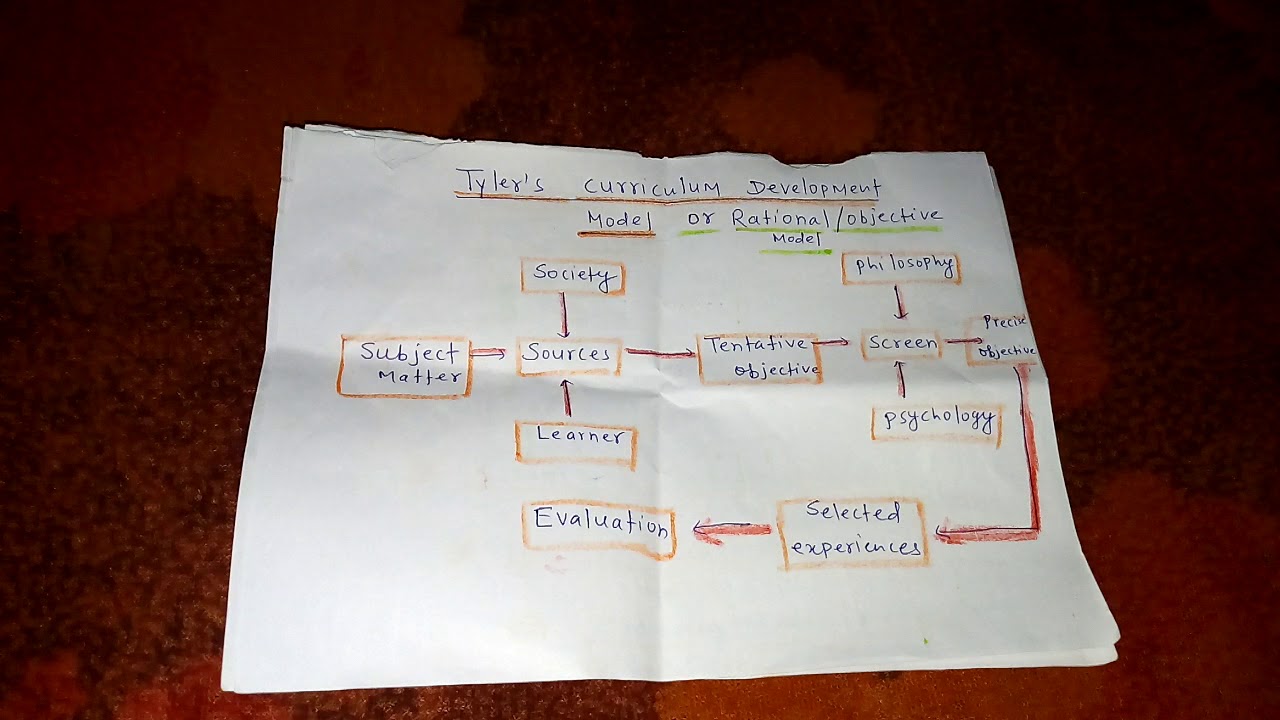 Tyler's Curriculum Development
Model or Rational/objective
Model
Society
philosophy
Subject
Matter
Sources
Tentative
objective
Screen
Precise
objective
Learner
psychology
Evaluation
Selected
experiences